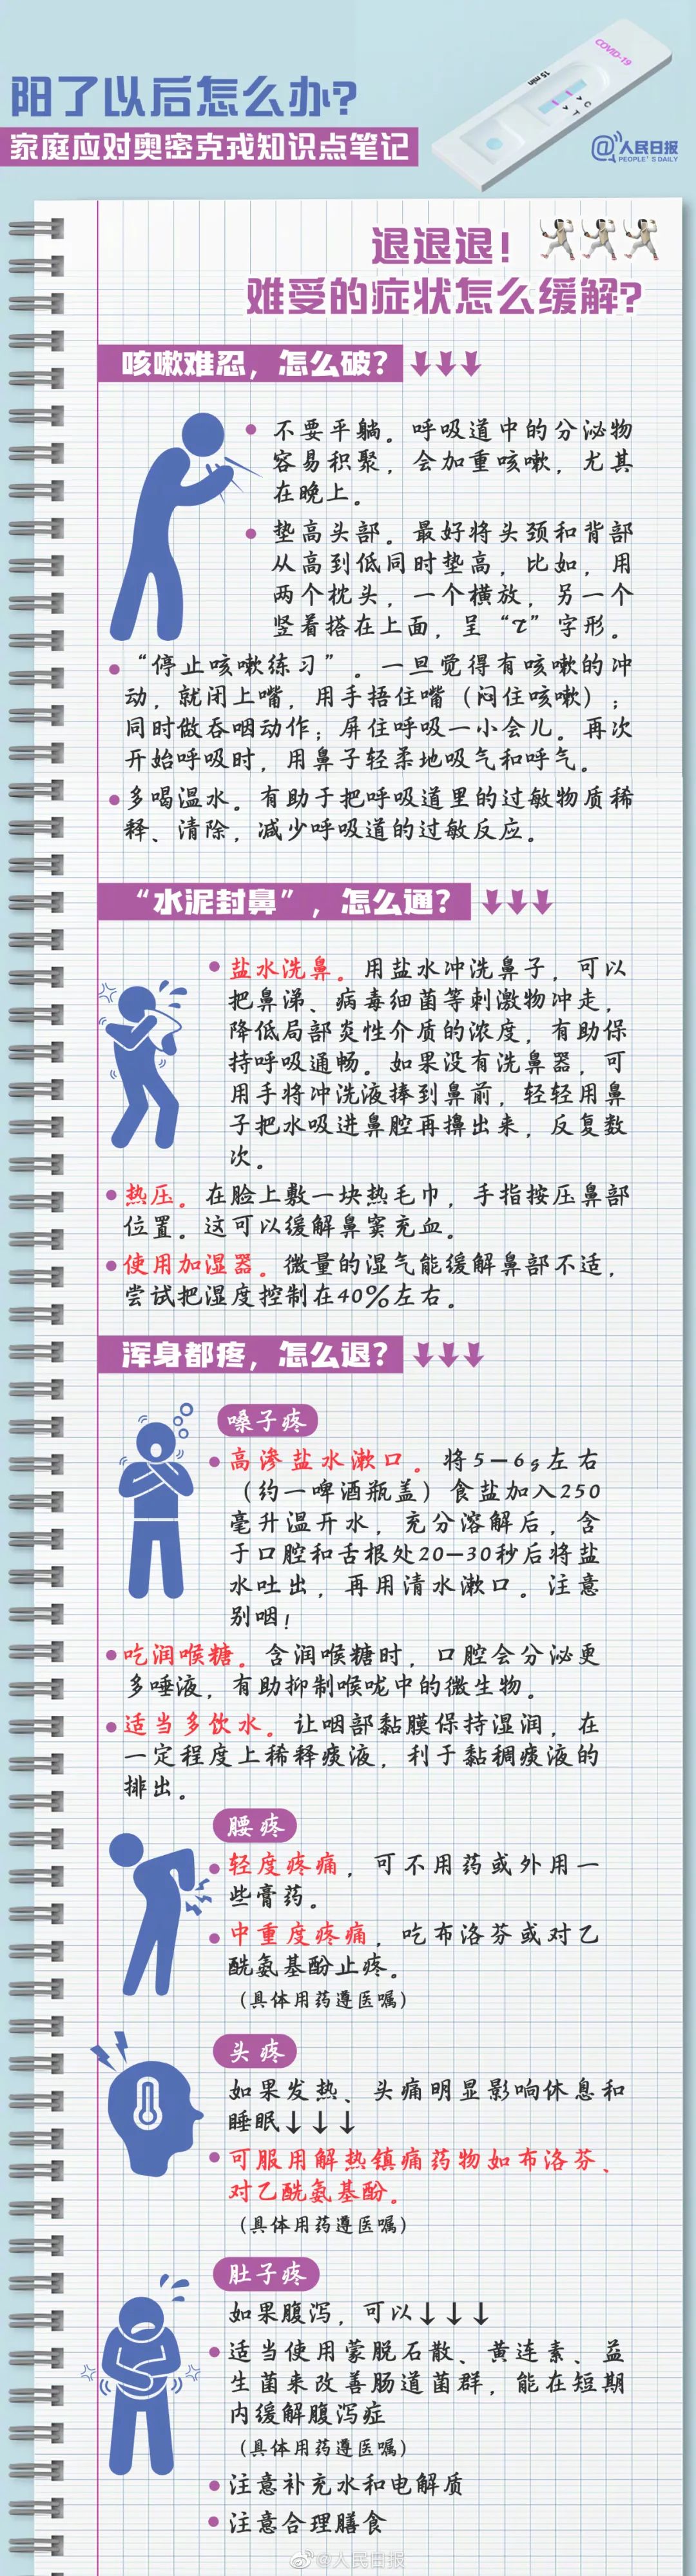 阳了以后怎么办?
家庭应对奥密克戎知识点笔记
COVID-19
15 min
C
T
@人民日报
PEOPLE'S DAILY
退退退!
难受的症状怎么缓解?
咳嗽难忍，怎么破?
不要平躺。呼吸道中的分泌物
容易积聚，会加重咳嗽，尤其
在晚上。
垫高头部。最好将头颈和背部
从高到低同时垫高，比如，用
两个枕头，一个横放，另一个
竖着搭在上面，呈“τ”字形。
“停止咳嗽练习”。一旦觉得有咳嗽的冲
动，就闭上嘴，用手捂住嘴（闷住咳嗽）；
同时做吞咽动作；屏住呼吸一小会儿。再次
开始呼吸时，用鼻子轻柔地吸气和呼气。
多喝温水。有助于把呼吸道里的过敏物质稀
释、清除，减少呼吸道的过敏反应。
“水泥封鼻”，怎么通?
盐水洗鼻。用盐水冲洗鼻子，可以
把鼻涕、病毒细菌等刺激物冲走，
降低局部炎性介质的浓度，有助保
持呼吸通畅。如果没有洗鼻器，可
用手将冲洗液捧到鼻前，轻轻用鼻
子把水吸进鼻腔再擤出来，反复数
次。
热压。在脸上敷一块热毛巾，手指按压鼻部
位置。这可以缓解鼻窦充血。
使用加湿器。微量的湿气能缓解鼻部不适，
尝试把湿度控制在40%左右。
浑身都疼，怎么退?
嗓子疼
高渗盐水漱口。将5—6g左右
（约一啤酒瓶盖）食盐加入250
毫升温开水，充分溶解后，含
于口腔和舌根处20—30秒后将盐
水吐出，再用清水漱口。注意
别咽!
吃润喉糖。含润喉糖时，口腔会分泌更
多唾液，有助抑制喉咙中的微生物。
适当多饮水。让咽部黏膜保持湿润，在
一定程度上稀释痰液，利于黏稠痰液的
排出。
腰疼
轻度疼痛，可不用药或外用一
些膏药。
中重度疼痛，吃布洛芬或对乙
酰氨基酚止疼。
（具体用药遵医嘱）
头疼
如果发热、头痛明显影响休息和
睡眠↓↓↓
可服用解热镇痛药物如布洛芬、
对乙酰氨基酚。
（具体用药遵医嘱）
肚子疼
如果腹泻，可以↓↓↓
适当使用蒙脱石散、黄连素、益
生菌来改善肠道菌群，能在短期
内缓解腹泻症
（具体用药遵医嘱）
注意补充水和电解质
注意合理膳食
@人民日报